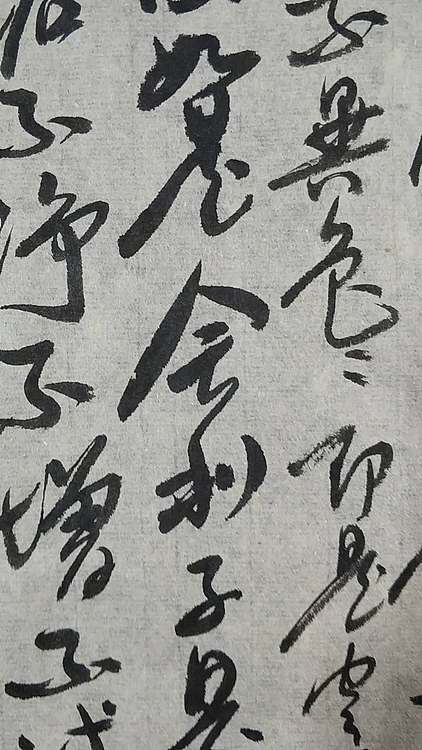 不異色〻即是空
如是舍利子是
垢不淨不增不減